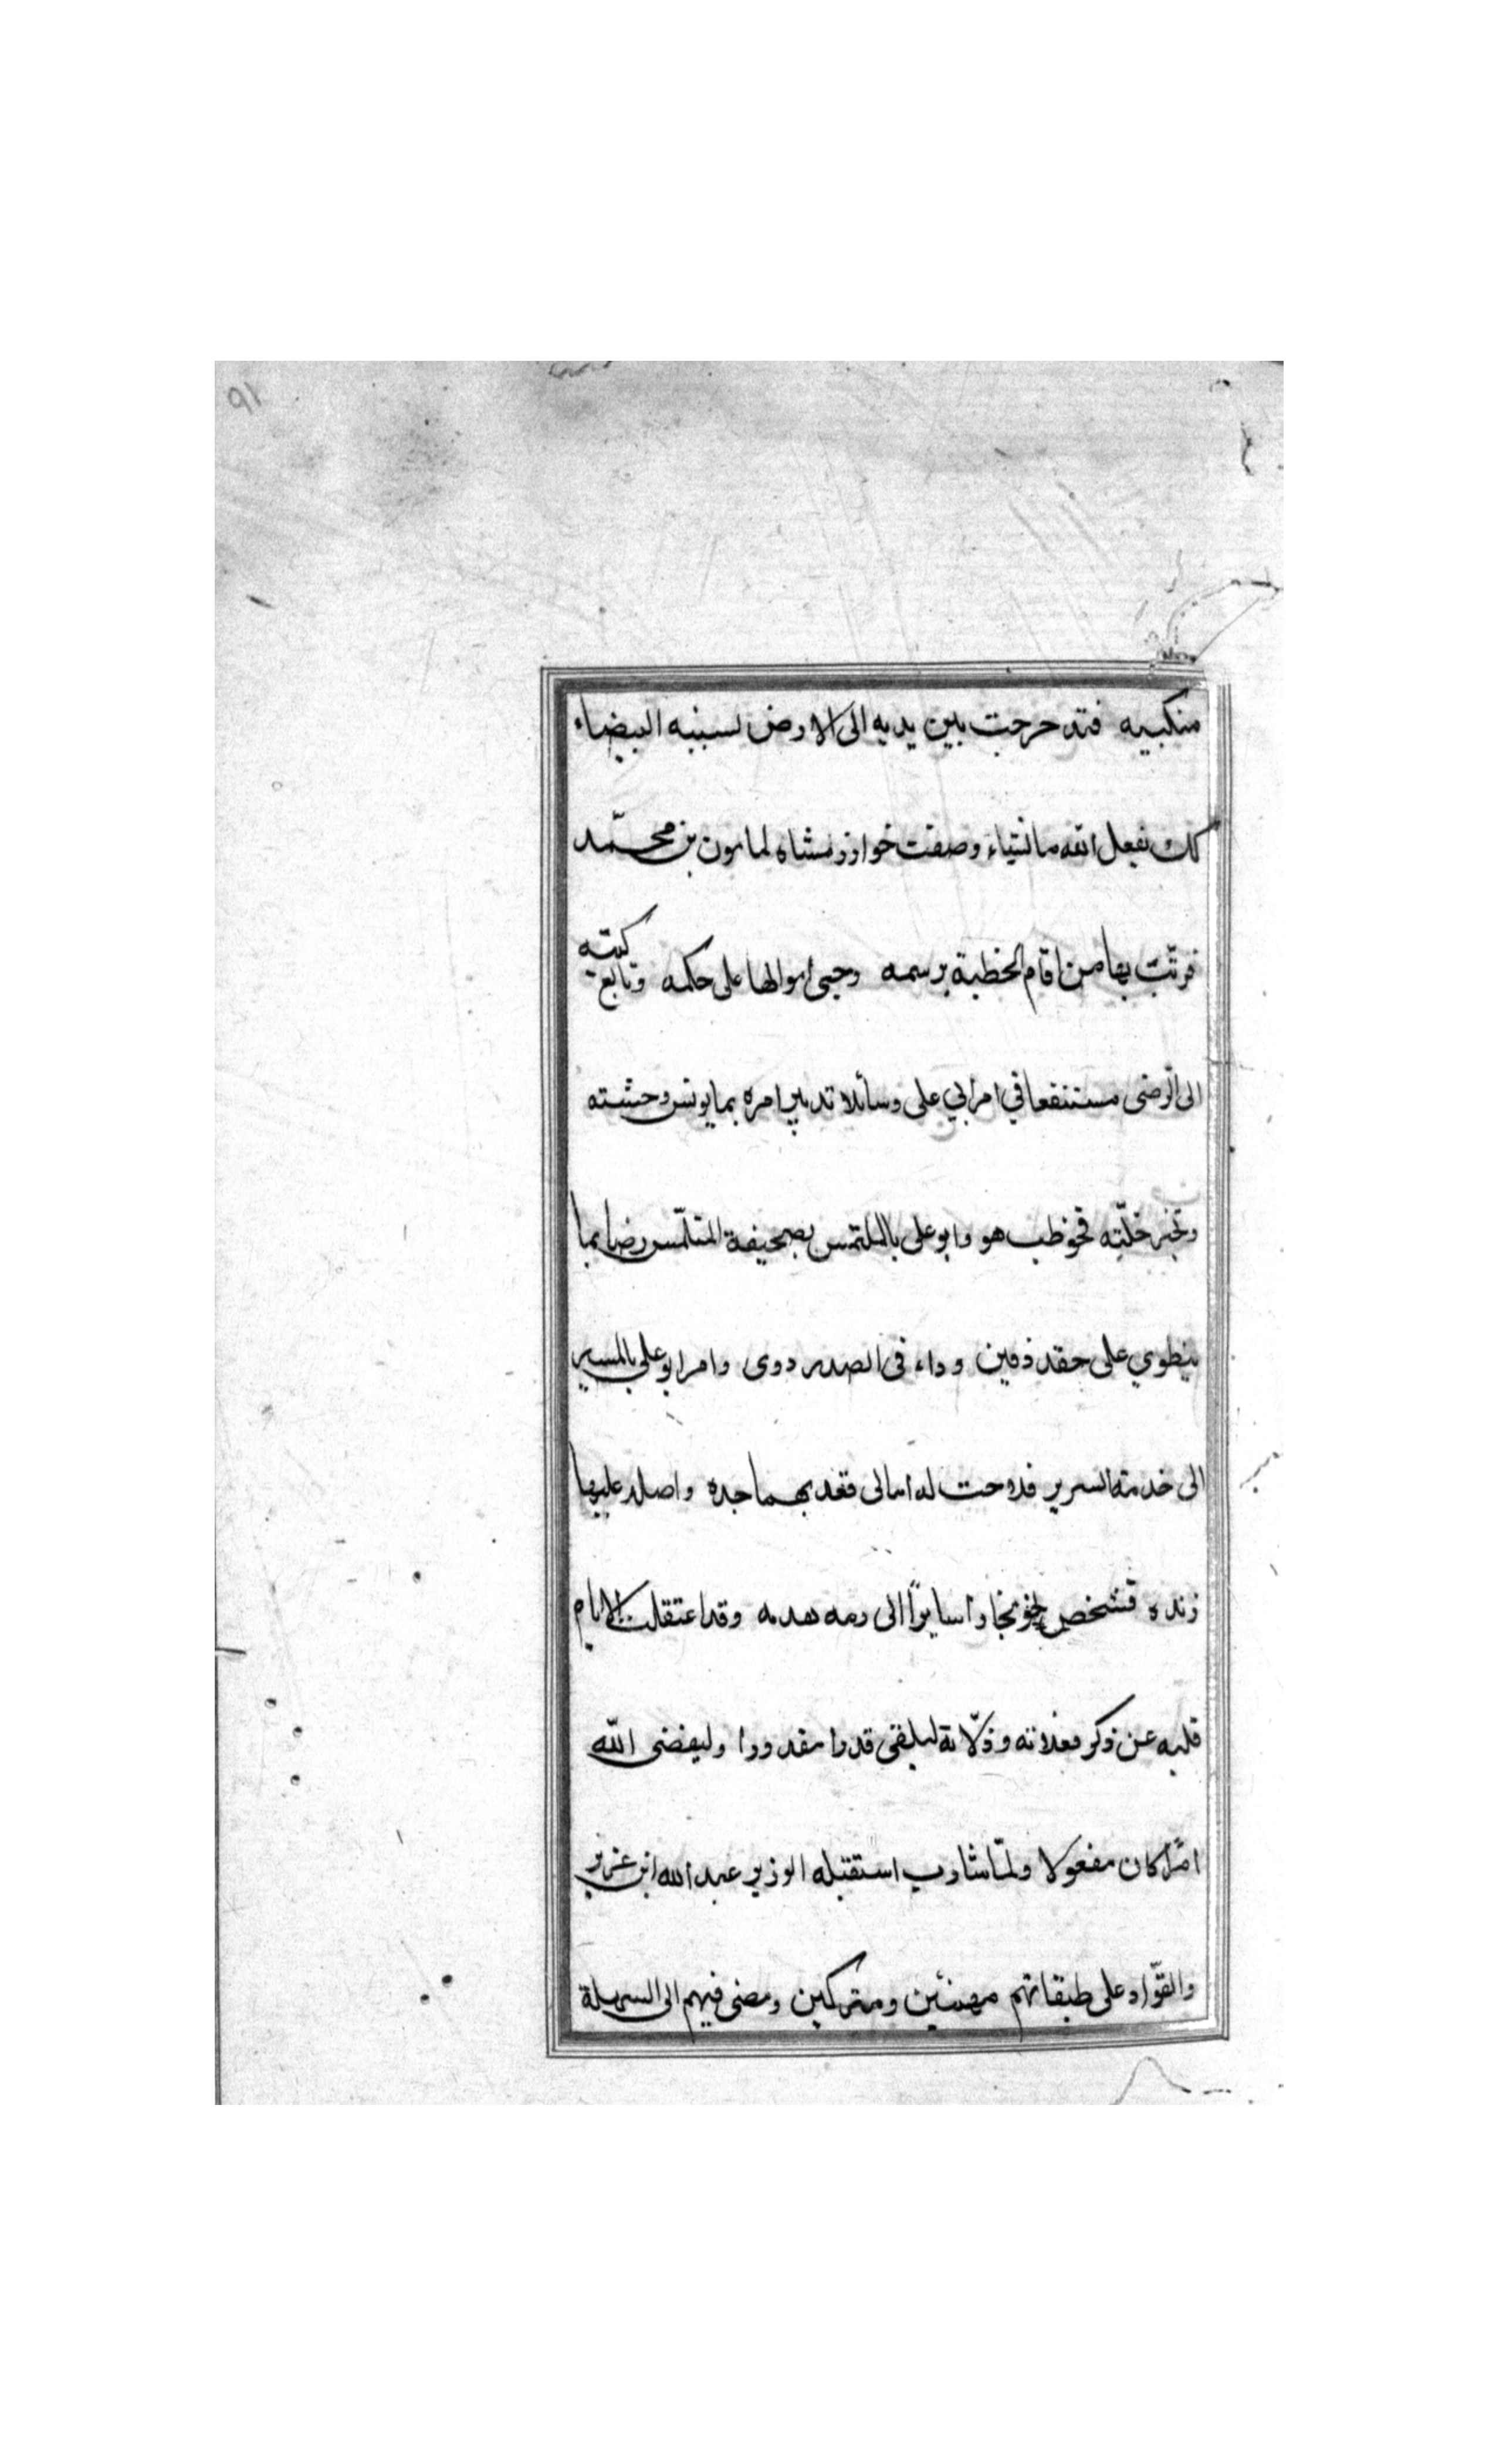 ٩١
منكبيه فتدحرجت بين يديه الى الارض لسببه البيضاء
كك يفعل الله ما يشاء وصفت خوارزمشاه لمامون بن محمّد
فرتّب بها من اقام الخطبة برسمه وجبى اموالها على حكمه وتابع كتبه
الى الرضى مستشفعا في امر ابي على وسائلا تدبير امره بما يونس وحشته
ويجبر خلّته فخوطب هو وابو على بالملتمس بصحيفة المتلمّس رضا بما
ينطوي على حقد دفين وداء فى الصدر دوى وامر ابو علي بالمسير
الى خدمة السرير فدحت له امالى قعد بهما جده واصلد عليها
زنده فشخص نحو بخارا سايرًا الى دمه بقدمه وقد اعتقلت الايام
قلبه عن ذكر فعلاته وذلّاته ليلقى قدرا مقدورا وليقضى اللّه
امرًا كان مفعولا ولمّا شارب استقبله الوزير عبد الله ابن عزير
والقوّاد على طبقاتهم مهنئين ومتبركين ومضى فيهم الى السهلة